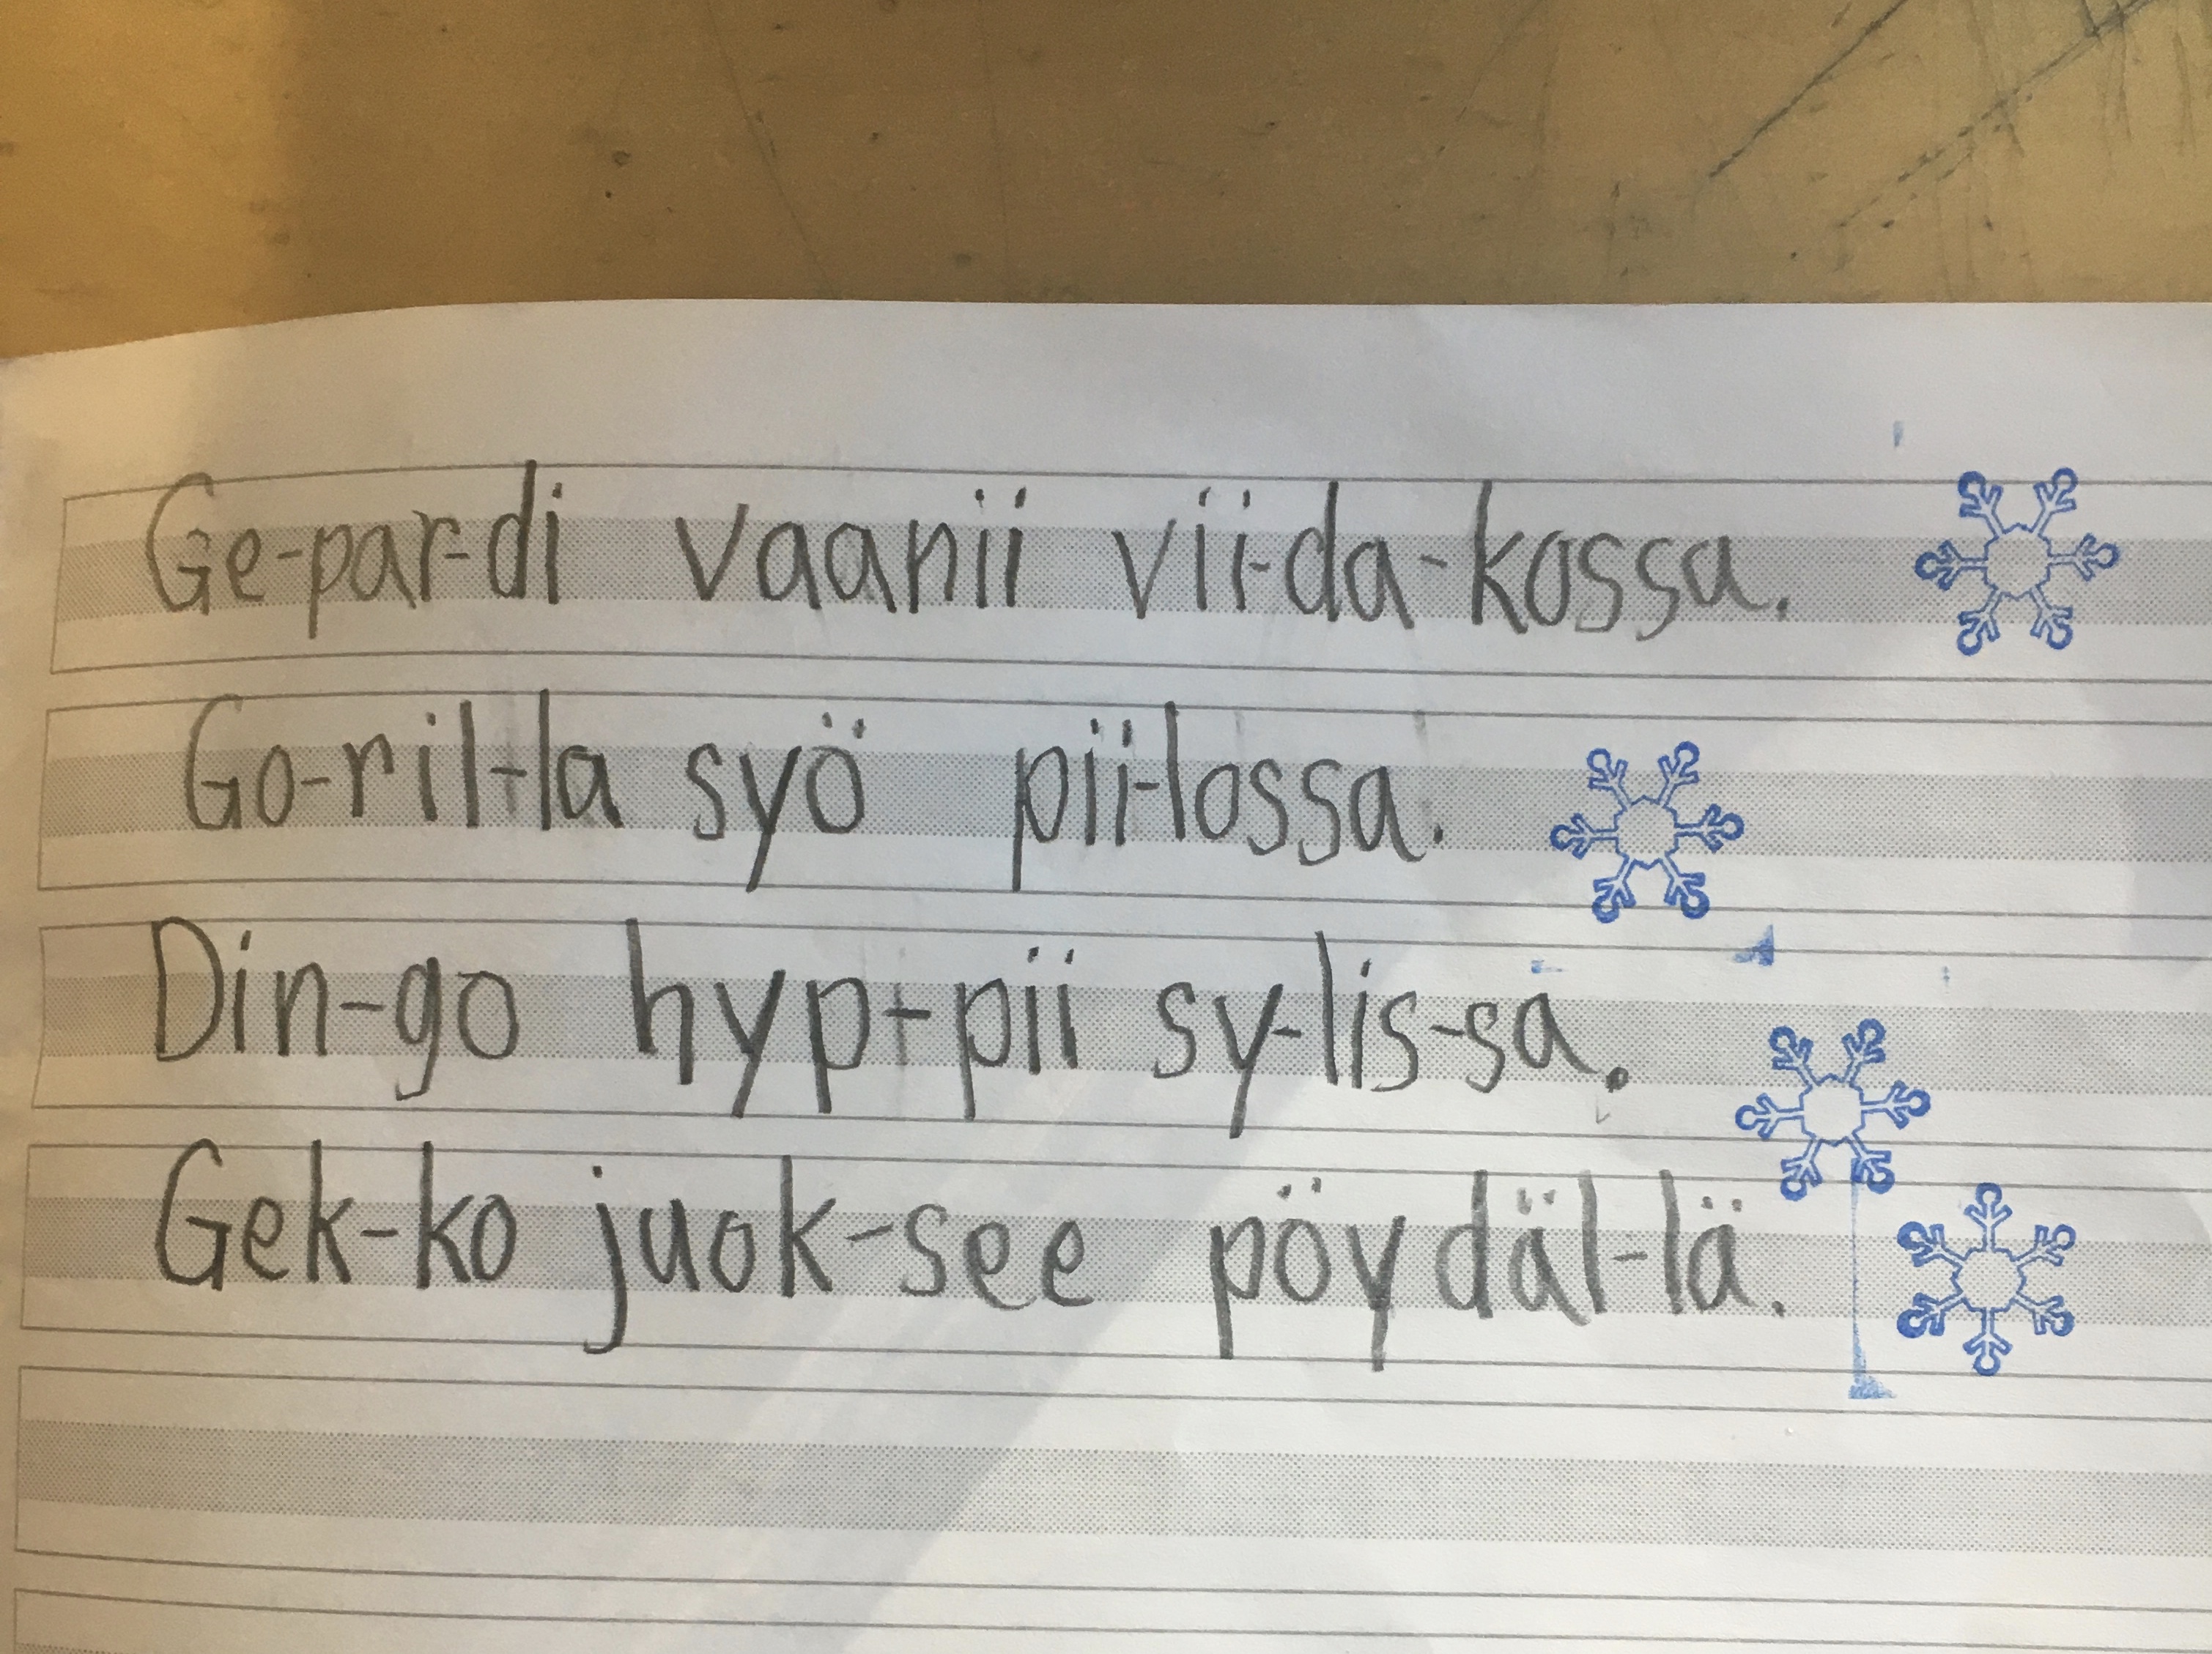 Ge-par-di vaanii vii-da-kossa.
Go-ril-la syö pii-lossa.
Din-go hyp-pii sy-lis-sä.
Gek-ko juok-see pöydäl-lä.